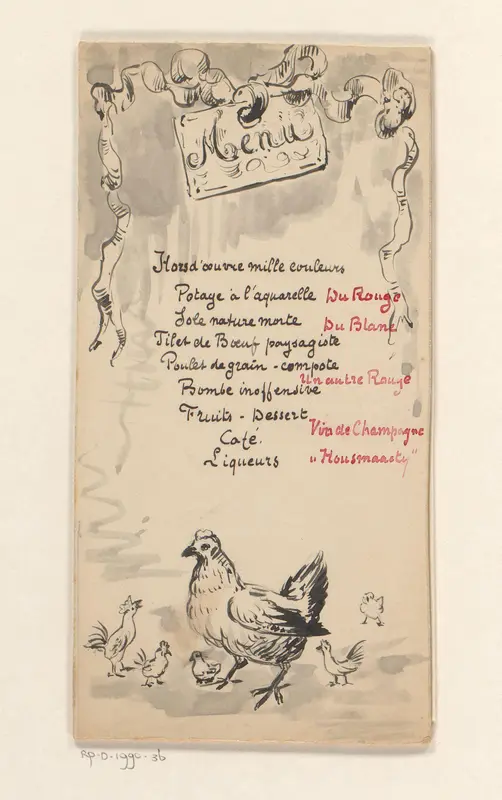 Menu
Hors d'œuvre mille couleurs
Potage à l'aquarelle Du Rouge
Sole nature morte Du Blanc
Filet de Bœuf paysagiste
Poulet de grain - compote
Un autre Rouge
Bombe inoffensive
Fruits - Dessert
Vin de Champagne
Café.
Liqueurs "Housmaasty"
RP-D-1990-36